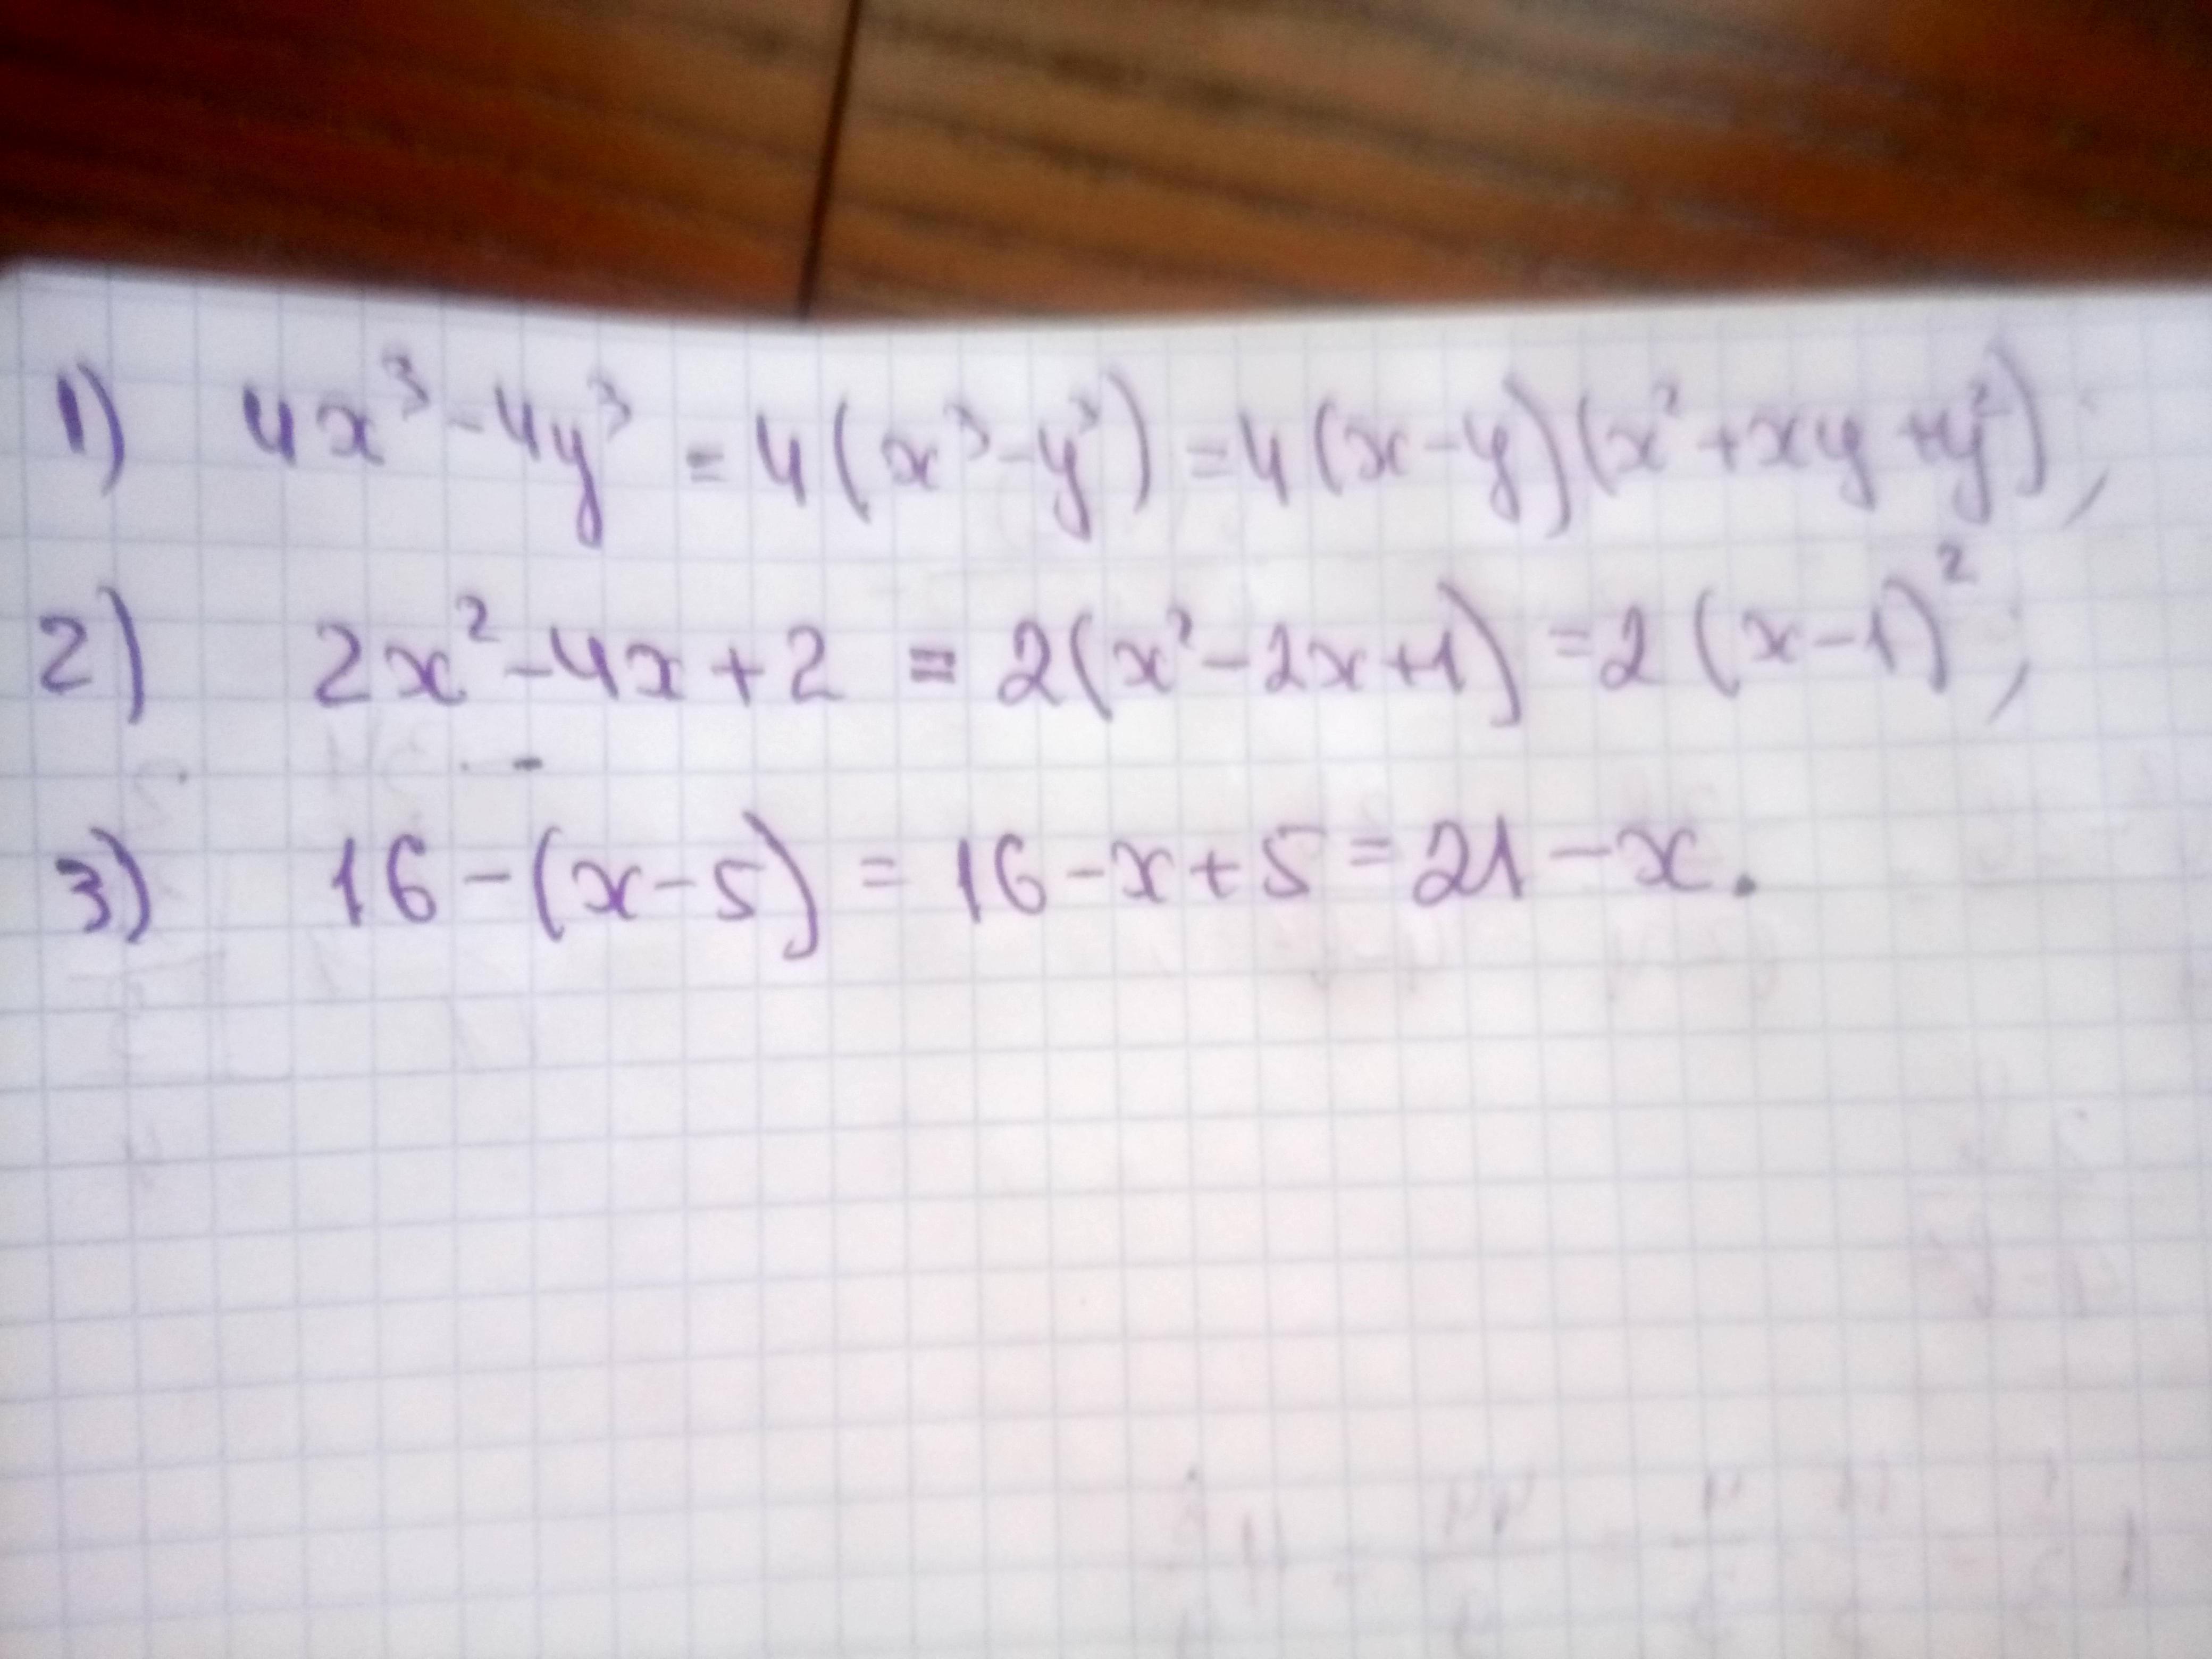 1) 4x³-4y³ = 4(x³-y³) = 4(x-y)(x²+xy+y²);
2) 2x²-4x+2 = 2(x²-2x+1) = 2(x-1)²;
3) 16-(x-5) = 16-x+5 = 21-x.